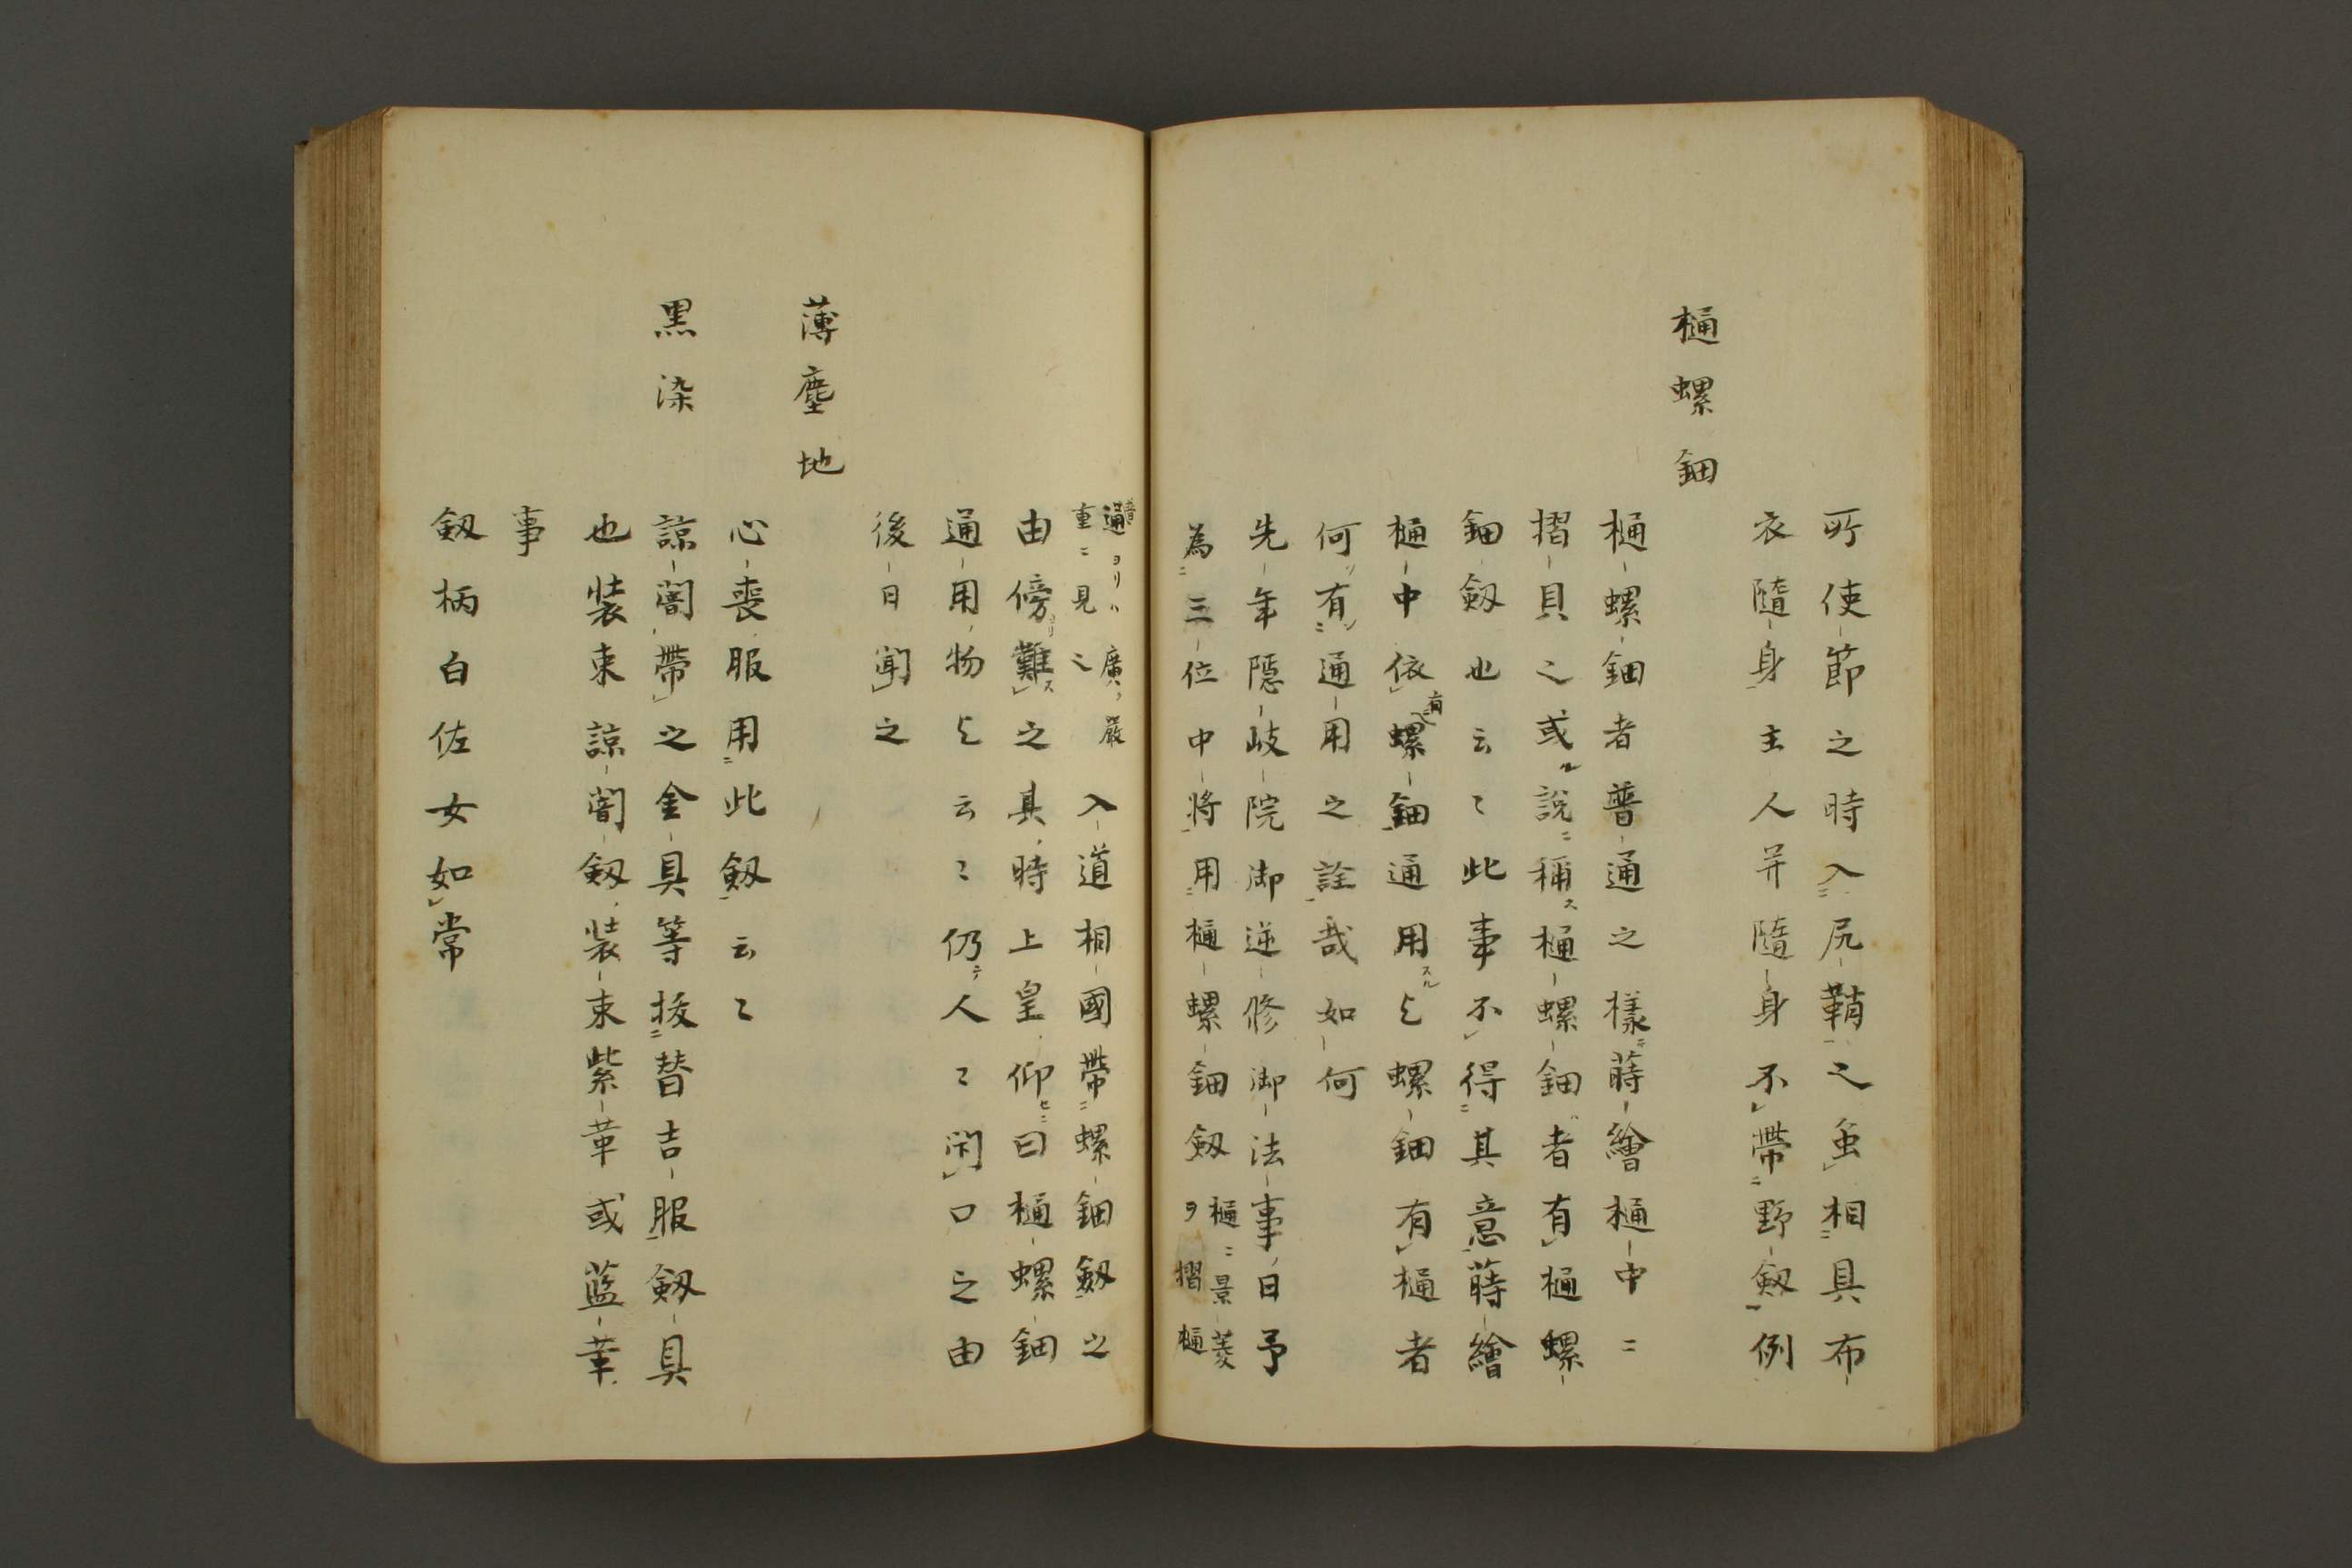 所使節之時入尻鞘之𮔉相具布
衣隨身主人并隨身不帶野劔例
樋螺鈿
樋螺鈿者普通之樣蒔繪樋中ニ
摺貝之或說稱樋螺鈿者有樋螺
鈿劔也云々此事不得其意蒔繪
樋中依螺鈿通用と螺鈿有樋者
何有通用之詮哉如何
先年隱岐院御逆修御法事日予
為三位中將用樋螺鈿劔樋ニ景菱
ヲ摺樋
普通ヨリハ廣ク嚴
重ニ見之入道相國帶螺鈿劔之
由傍難之具時上皇仰曰樋螺鈿
通用物と云々仍人々閇口之由
後日聞之
薄塵地
心喪服用此劔云々
黒染
諒闇帶之金具等拔替吉服劔具
也裝束諒闇劔裝束紫革或藍革
事
劔柄白佐女如常